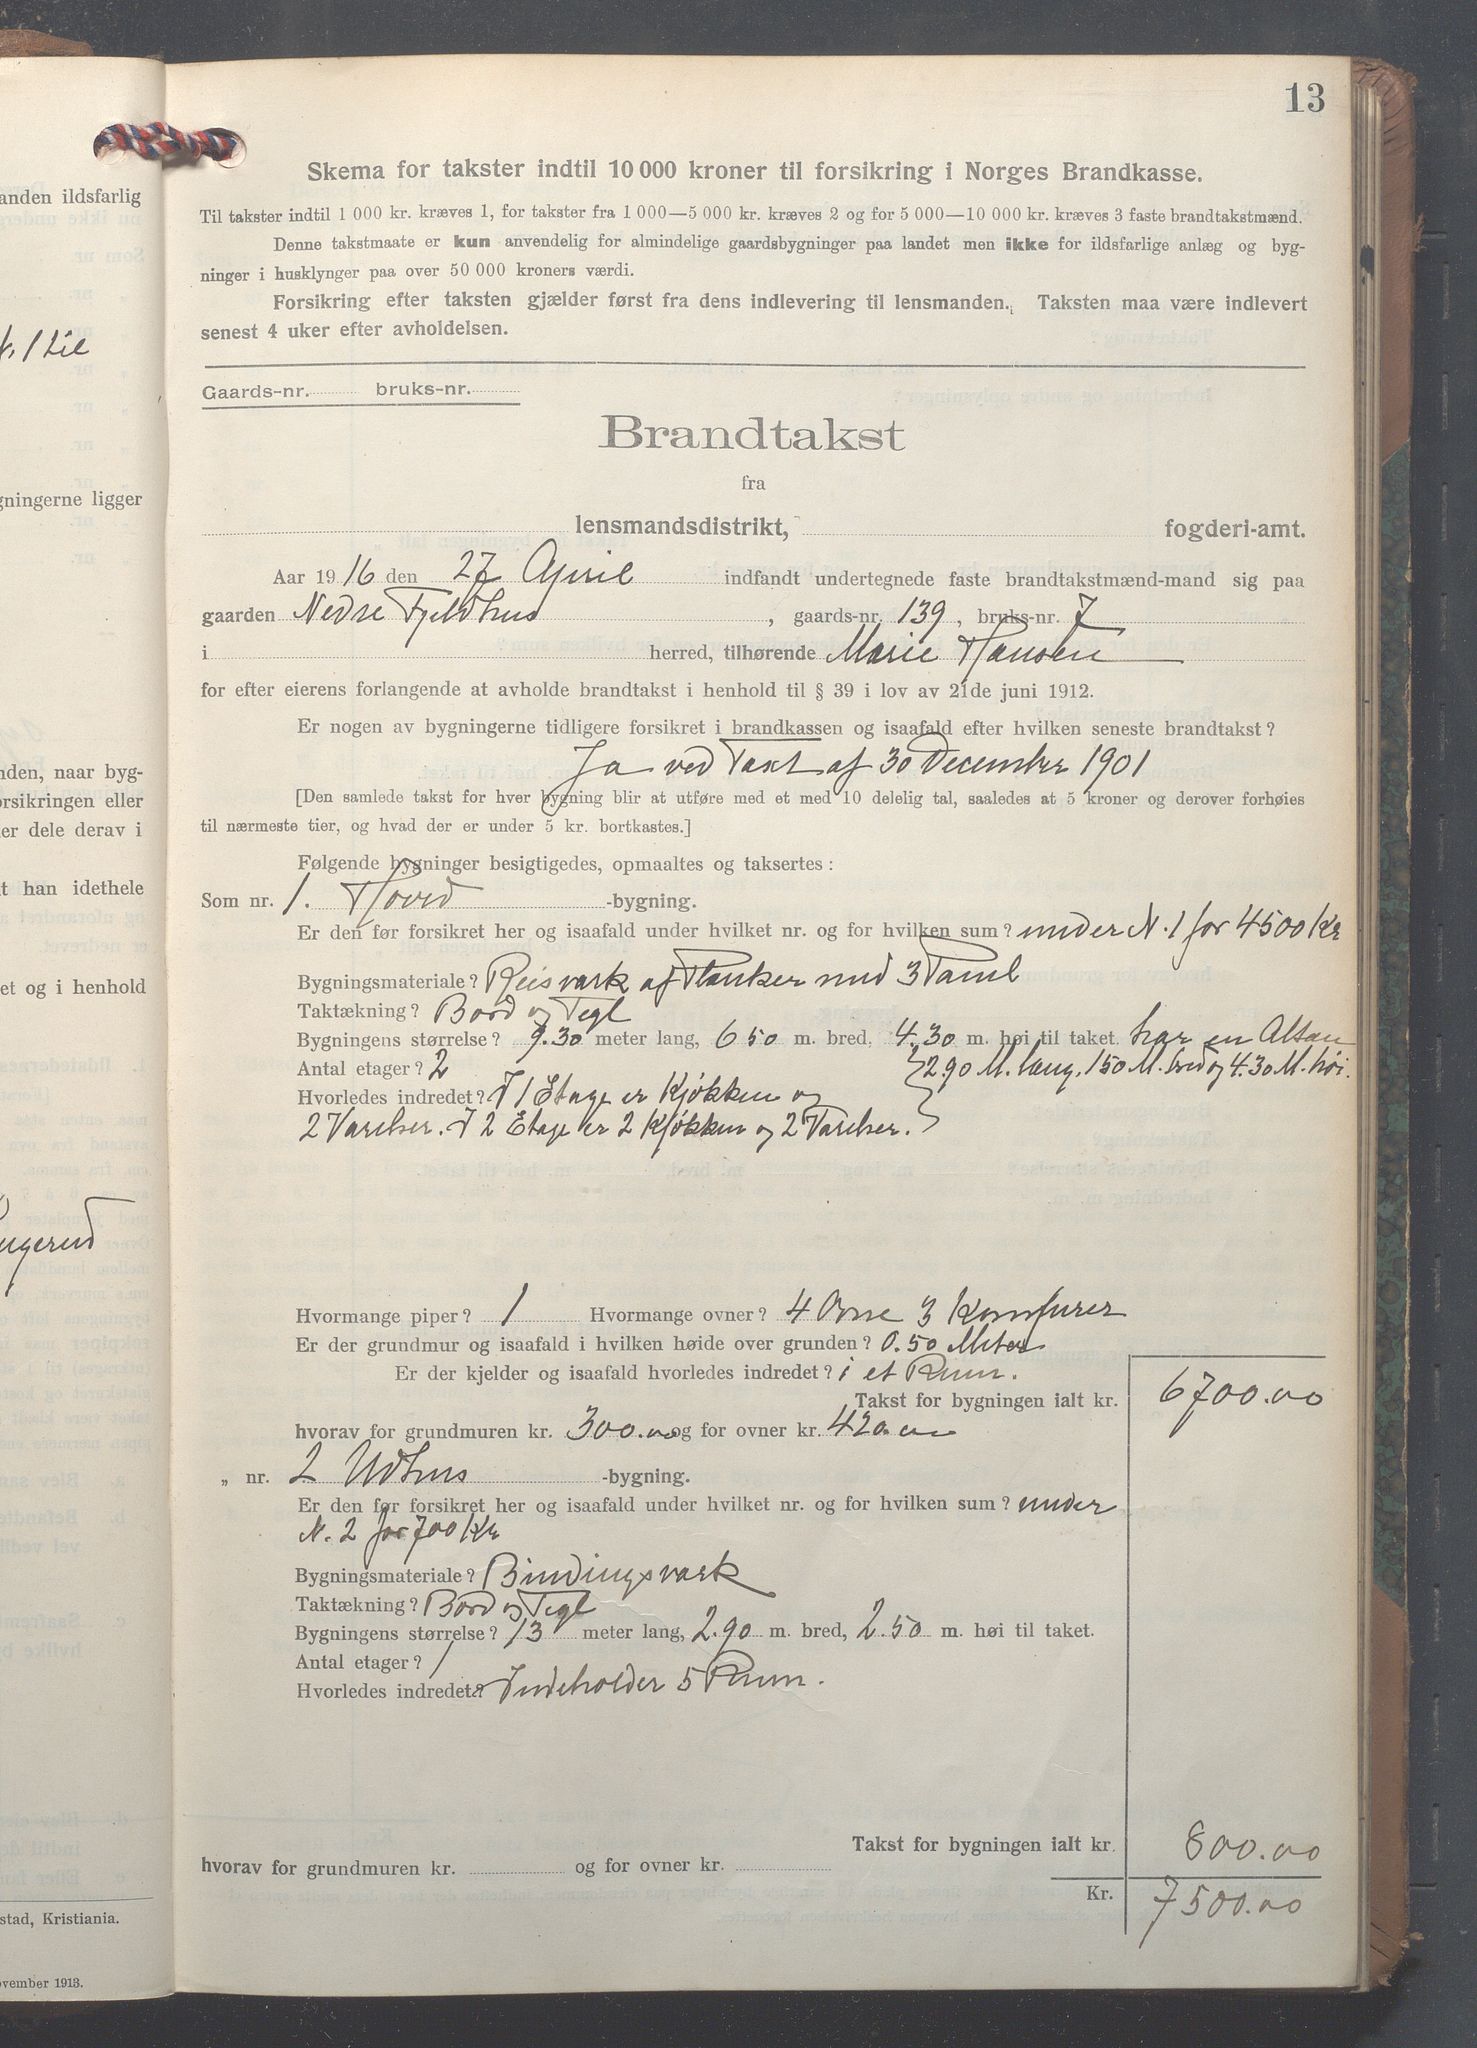 13
Skema for takster indtil 10 000 kroner til forsikring i Norges Brandkasse.
Til takster indtil 1 000 kr. kræves 1, for takster fra 1 000—5 000 kr. kræves 2 og for 5 000—10 000 kr. kræves 3 faste brandtakstmænd.
Denne takstmaate er kun anvendelig for almindelige gaardsbygninger paa landet men ikke for ildsfarlige anlæg og byg-
ninger i husklynger paa over 50 000 kroners værdi.
Forsikring efter taksten gjælder først fra dens indlevering til lensmanden. Taksten maa være indlevert
senest 4 uker efter avholdelsen.
Gaards-nr. bruks-nr.
Brandtakst
fra
lensmandsdistrikt, fogderi-amt.
Aar 1916 den 27 April indfandt undertegnede faste brandtakstmænd-mand sig paa
gaarden Nedre Fjeldhus, gaards-nr. 139, bruks-nr. 7
i herred, tilhørende Marie Hansen
for efter eierens forlangende at avholde brandtakst i henhold til § 39 i lov av 21de juni 1912.
Er nogen av bygningerne tidligere forsikret i brandkassen og isaafald efter hvilken seneste brandtakst?
Ja ved Taxt af 30 December 1901
[Den samlede takst for hver bygning blir at utføre med et med 10 delelig tal, saaledes at 5 kroner og derover forhøies
til nærmeste tier, og hvad der er under 5 kr. bortkastes.]
Følgende bygninger besigtigedes, opmaaltes og taksertes:
Som nr. 1. Hoved -bygning.
Er den før forsikret her og isaafald under hvilket nr. og for hvilken sum? under N. 1 for 4500 Kr
Bygningsmateriale? Reisværk af Planker med 3 Panel
Taktækning? Bord og Tegl
Bygningens størrelse? 9.30 meter lang, 6 50 m. bred, 4.30 m. høi til taket. har en Altan
Antal etager? 2 2.90 M. lang, 1.50 M. bred og 4.30 M. høi.
Hvorledes indredet? I 1 Etage er Kjøkken og
2 Værelser. I 2 Etage er 2 Kjøkken og 2 Værelser.
Hvormange piper? 1 Hvormange ovner? 4 Ovne 3 Komfurer
Er der grundmur og isaafald i hvilken høide over grunden? 0.50 Meter
Er der kjelder og isaafald hvorledes indredet? i et Rum.
Takst for bygningen ialt kr. 6700.00
hvorav for grundmuren kr. 300.00 og for ovner kr. 420.00
„ nr. 2 Udhus -bygning.
Er den før forsikret her og isaafald under hvilket nr. og for hvilken sum? under
N. 2 for 700 Kr
Bygningsmateriale? Bindingsværk
Taktækning? Bord og Tegl
Bygningens størrelse? 13 meter lang, 2.90 m. bred, 2.50 m. høi til taket.
Antal etager? 1
Hvorledes indredet? Indeholder 5 Rum.
Takst for bygningen ialt kr. 800.00
hvorav for grundmuren kr. og for ovner kr.
Kr. 7500.00
anden ildsfarlig
gningerne ligger
nden, naar byg-
orsikringen eller
er dele derav i
t han idethele
et og i henhold
stad, Kristiania.
ovember 1913.